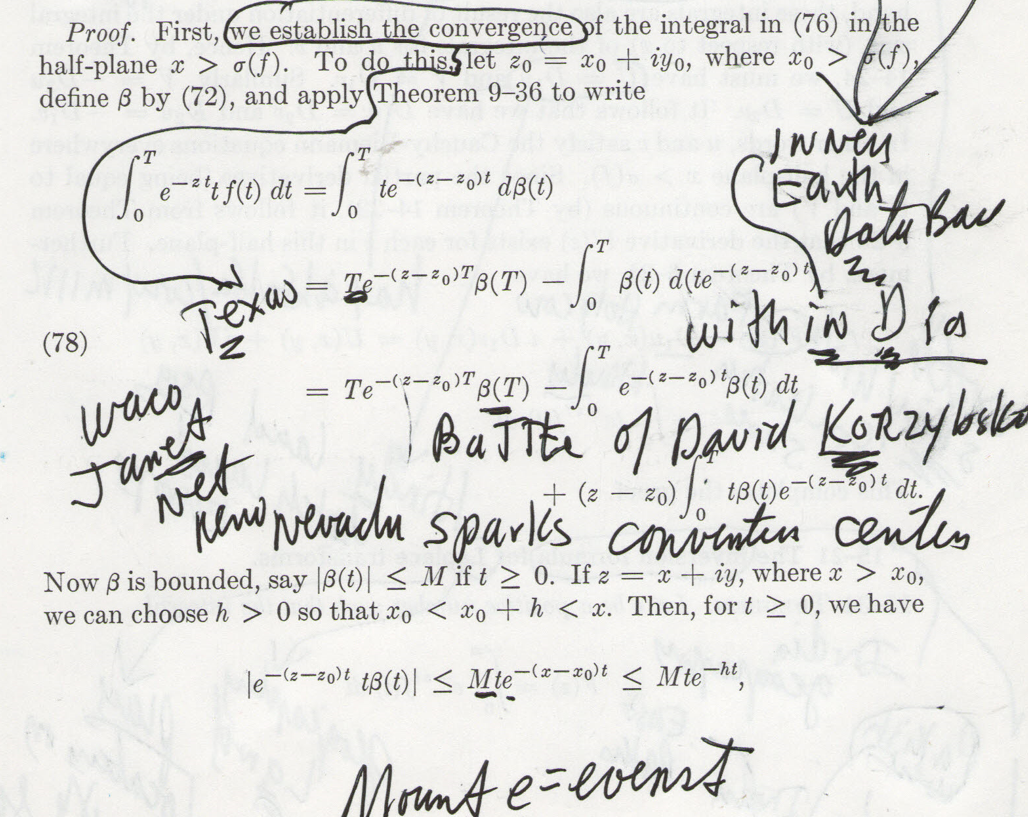 Proof. First, we establish the convergence of the integral in (76) in the
half-plane x > σ(f). To do this, let z₀ = x₀ + iy₀, where x₀ > σ(f),
define β by (72), and apply Theorem 9–36 to write
INNER
Earth
Data Base
∫₀ᵀ e^{-zt} t f(t) dt = ∫₀ᵀ te^{-(z-z₀)t} dβ(t)
= Te^{-(z-z₀)T} β(T) − ∫₀ᵀ β(t) d(te^{-(z-z₀)t}
Texas
within D
(78)
= Te^{-(z-z₀)T} β(T) − ∫₀ᵀ e^{-(z-z₀)t} β(t) dt
Waco
James
Net
Battle of David
+ (z − z₀) ∫₀ᵀ tβ(t)e^{-(z-z₀)t} dt.
Reno Nevada sparks convention center
Now β is bounded, say |β(t)| ≤ M if t ≥ 0. If z = x + iy, where x > x₀,
we can choose h > 0 so that x₀ < x₀ + h < x. Then, for t ≥ 0, we have
|e^{-(z-z₀)t} tβ(t)| ≤ Mte^{-(x-x₀)t} ≤ Mte^{-ht},
Mount e=everest